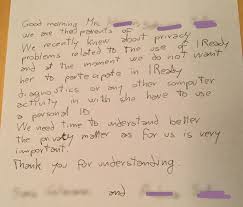 Good morning Mrs.
we are the parents of
We recently know about privacy
problems related to the use of IReady
and at the moment we do not want
her to partecipate in IReady
diagnostics or any other computer
activity in with she have to use
a personal ID.
We need time to understand better
the privaty matter as for us is very
important.
Thank you for understanding.
and